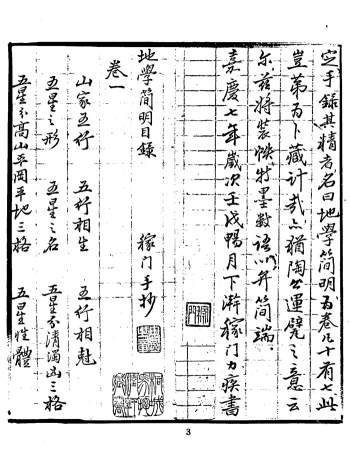 定手錄其精者名曰地學簡明為卷凡十有七此
豈第為卜藏計哉亦猶陶公運甓之意云
尔茲將裝帙特墨數語以弁簡端
嘉慶七年歲次壬戌暢月下澣稼门力疾書
地學簡明目錄
稼门手抄
卷一
山家五行 五行相生 五行相尅
五星之形 五星之名 五星分清濁凶三格
五星分高山平岡平地三格 五星性體
3